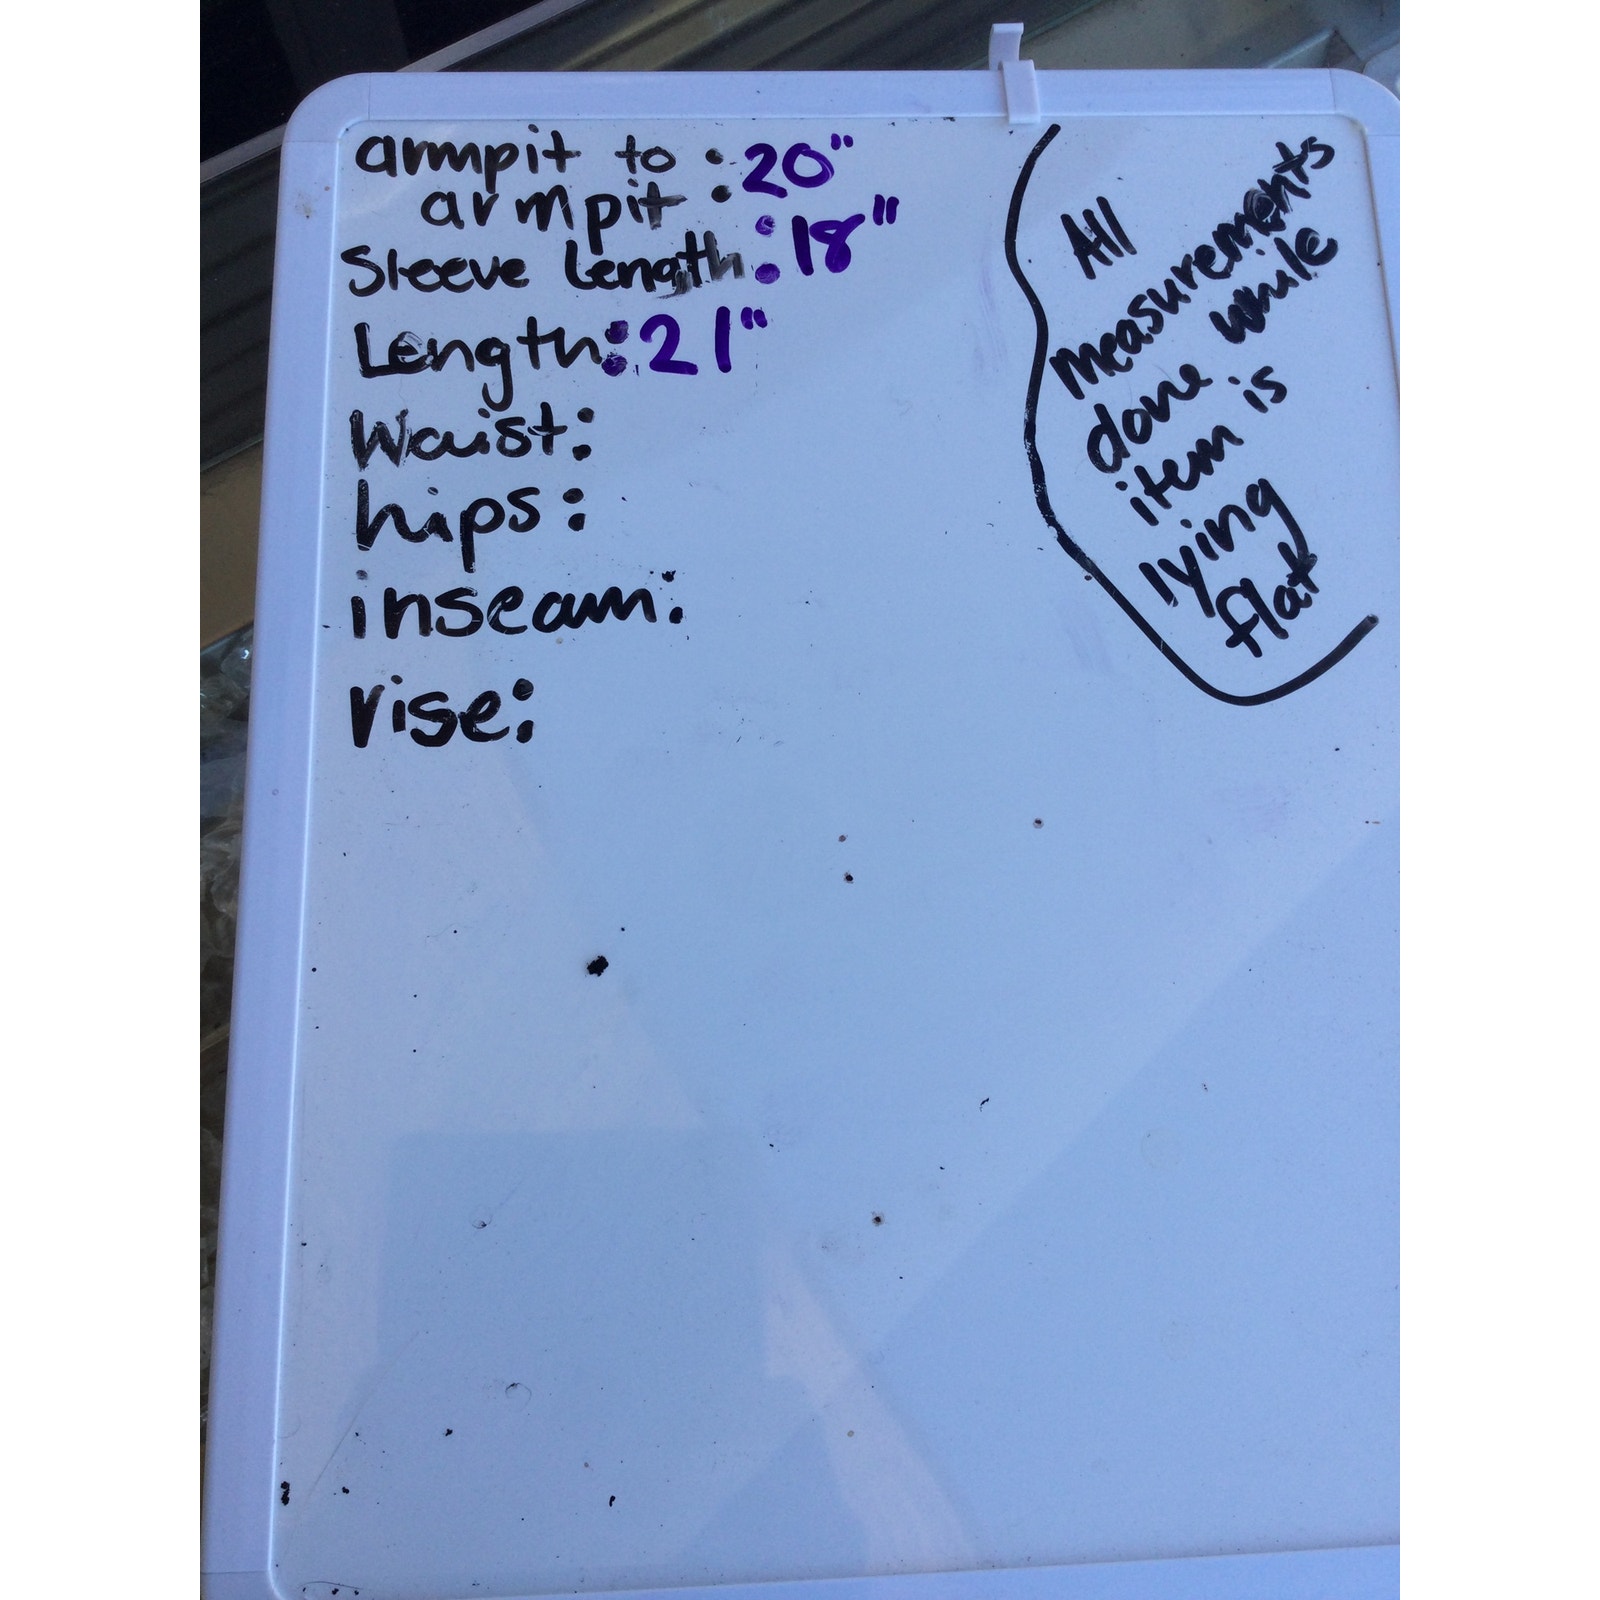 armpit to
armpit : 20"
Sleeve Length: 18"
Length: 21"
Waist:
hips:
inseam:
rise:
All
measurements
done while
item is
lying
flat